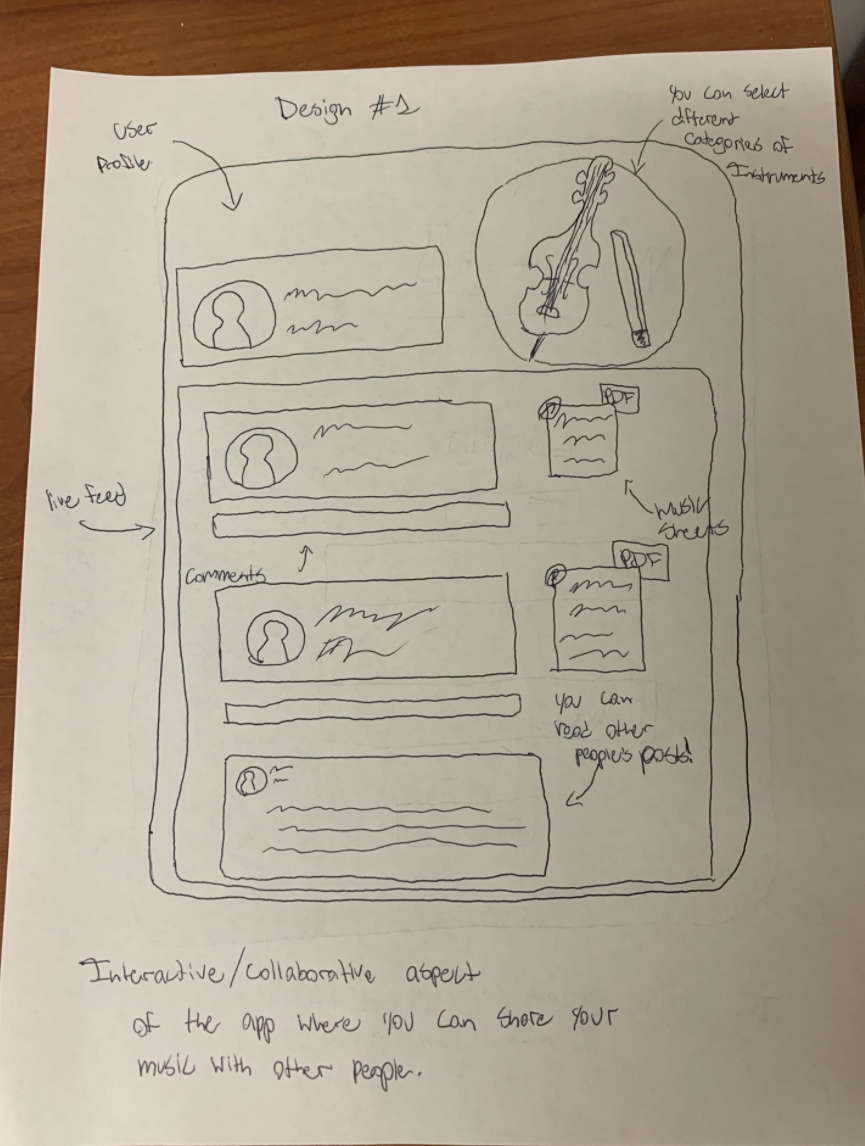 Design #1
User
Profile
You can select
different
Categories of
Instruments
live feed
PDF
Music
Sheets
Comments
PDF
You can
read other
people's posts!
Interactive/Collaborative aspect
of the app where you can share your
music with other people.